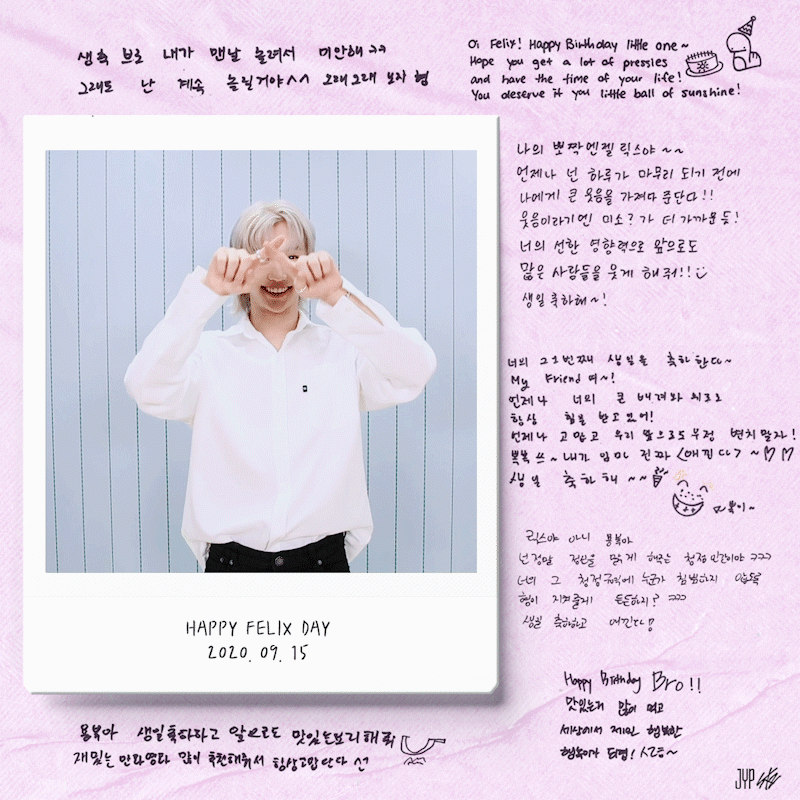 생축 브로 내가 맨날 놀려서 미안해ㅋㅋ
그래도 난 계속 놀릴거야^^ 오래오래 보자 형
Oi Felix! Happy Birthday little one~
Hope you get a lot of pressies
and have the time of your life!
You deserve it you little ball of sunshine!
나의 뽀짝엔젤 릭스야~~
언제나 넌 하루가 마무리 되기 전에
나에게 큰 웃음을 가져다 준단다!!
웃음이라기엔 미소?가 더 가까운듯!
너의 선한 영향력으로 앞으로도
많은 사람들을 웃게 해줘!!
생일 축하해~!
너의 21번째 생일을 축하한다~
My Friend 여~!
언제나 너의 큰 배려와 위로로
항상 힘을 받고있어!
언제나 고맙고 우리 앞으로도 우정 변치말자!
뽁뽁쓰~ 내가 임마 진짜 <애낀다>~♡♡
생일 축하해~~
릭스야 아니 용복아
넌 정말 정신을 맑게 해주는 청정인간이야 ㅋㅋㅋ
너의 그 청정구역에 누군가 침범하지 않도록
형이 지켜줄게 든든하지? ㅋㅋㅋ
생일 축하하고 애낀다!
Happy Birthday Bro!!
맛있는거 많이 먹고
세상에서 제일 행복한
행복이가 되렴!
HAPPY FELIX DAY
2020. 09. 15
용복아 생일축하하고 앞으로도 맛있는요리해줘
재밌는 만화영화 많이 추천해줘서 항상고맙단다
JYP